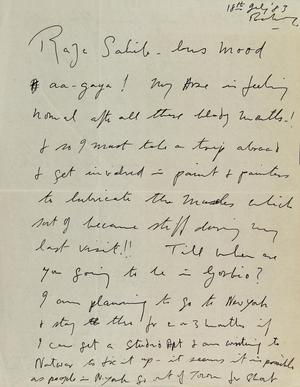 18th July 83
Raja Sahib - bus mood
aa-gaya! My  is feeling
normal after all these bloody months!
& so I must take a trip abroad
& get involved in paint & painters
to lubricate the Muscles which
sort of became stiff during my
last visit!! Till when are
you going to be in Gorbio?
I am planning to go to NewYork
& stay there for 2 or 3 months if
I can get a Studio Apt & am writing to
Natwar to fix it up - it seems it impossible
as people in NYork go out of Town for that